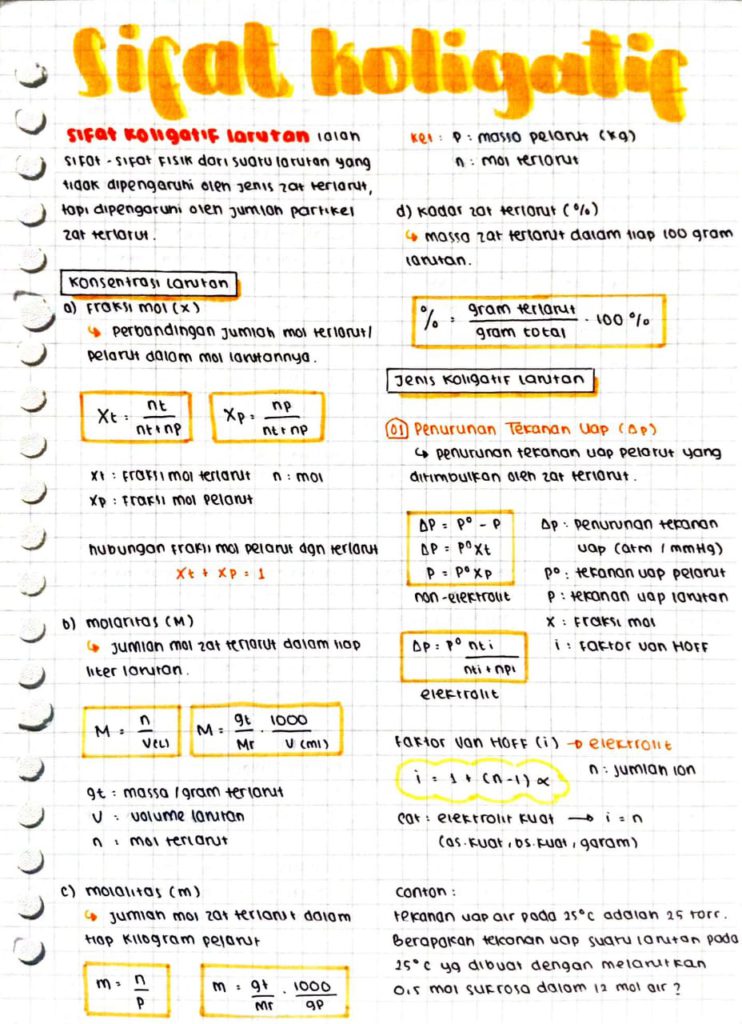 Sifat koligatif
Sifat Koligatif Larutan ialah
sifat - sifat fisik dari suatu larutan yang
tidak dipengaruhi oleh jenis zat terlarut,
tapi dipengaruhi oleh jumlah partikel
zat terlarut.
Konsentrasi Larutan
a) Fraksi mol (x)
↳ perbandingan jumlah mol terlarut/
pelarut dalam mol larutannya.
Xt = nt / nt+np
Xp = np / nt+np
xt : fraksi mol terlarut n : mol
xp : fraksi mol pelarut
hubungan fraksi mol pelarut dgn terlarut
Xt + Xp = 1
b) molaritas (M)
↳ jumlah mol zat terlarut dalam tiap
liter larutan.
M = n / V(L)
M = gt / Mr . 1000 / V (ml)
gt : massa / gram terlarut
V : volume larutan
n : mol terlarut
c) molalitas (m)
↳ jumlah mol zat terlarut dalam
tiap kilogram pelarut
m = n / p
m = gt / Mr . 1000 / gp
ket : p : massa pelarut (kg)
n : mol terlarut
d) Kadar zat terlarut (%)
↳ massa zat terlarut dalam tiap 100 gram
larutan.
% = gram terlarut / gram total . 100 %
Jenis Koligatif Larutan
01 Penurunan Tekanan Uap (Δp)
↳ penurunan tekanan uap pelarut yang
ditimbulkan oleh zat terlarut.
ΔP = P° - P
ΔP = P° Xt
P = P° Xp
non-elektrolit
ΔP = P° nt i / nt i + np
elektrolit
Δp : penurunan tekanan
uap (atm / mmHg)
p° : tekanan uap pelarut
P : tekanan uap larutan
X : fraksi mol
i : faktor van HOFF
Faktor Van HOFF (i) → elektrolit
i = 1 + (n-1) α
n : jumlah ion
cat : elektrolit kuat → i = n
(as.kuat, bs.kuat, garam)
contoh :
tekanan uap air pada 25°C adalah 25 torr.
Berapakah tekanan uap suatu larutan pada
25°C yg dibuat dengan melarutkan
0,5 mol sukrosa dalam 12 mol air ?